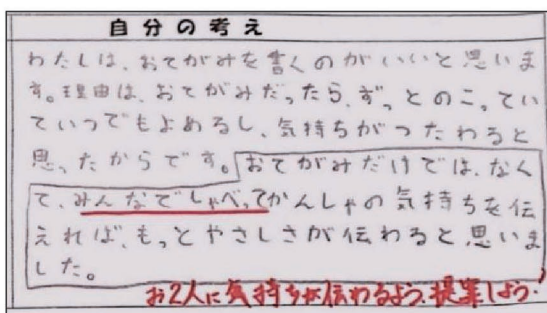 自分の考え
わたしは、おてがみを書くのがいいと思いま
す。理由は、おてがみだったら、ずっとのこってい
ていつでもよめるし、気持ちがつたわると
思ったからです。おてがみだけでは、なく
て、みんなでしゃべってかんしゃの気持ちを伝
えれば、もっとやさしさが伝わると思いま
した。
お2人に気持ちが伝わるよう、提案しよう!